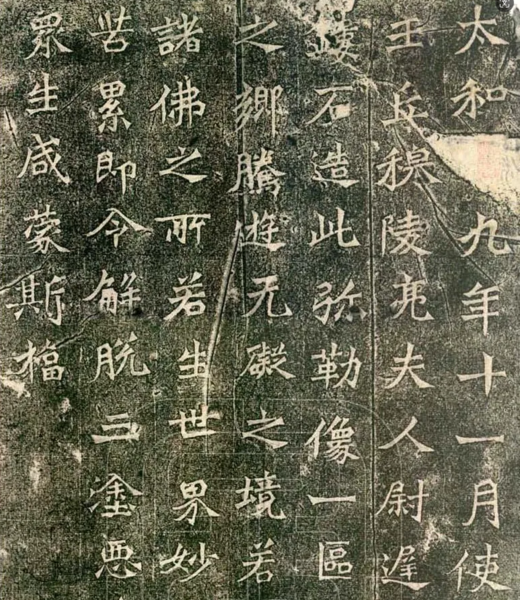 太和九年十一月使
王丘穆陵亮夫人尉遲
鏤石造此弥勒像一區
之鄉騰遊无礙之境若
諸佛之所若生世界妙
苦累即令解脫三塗惡
眾生咸蒙斯福